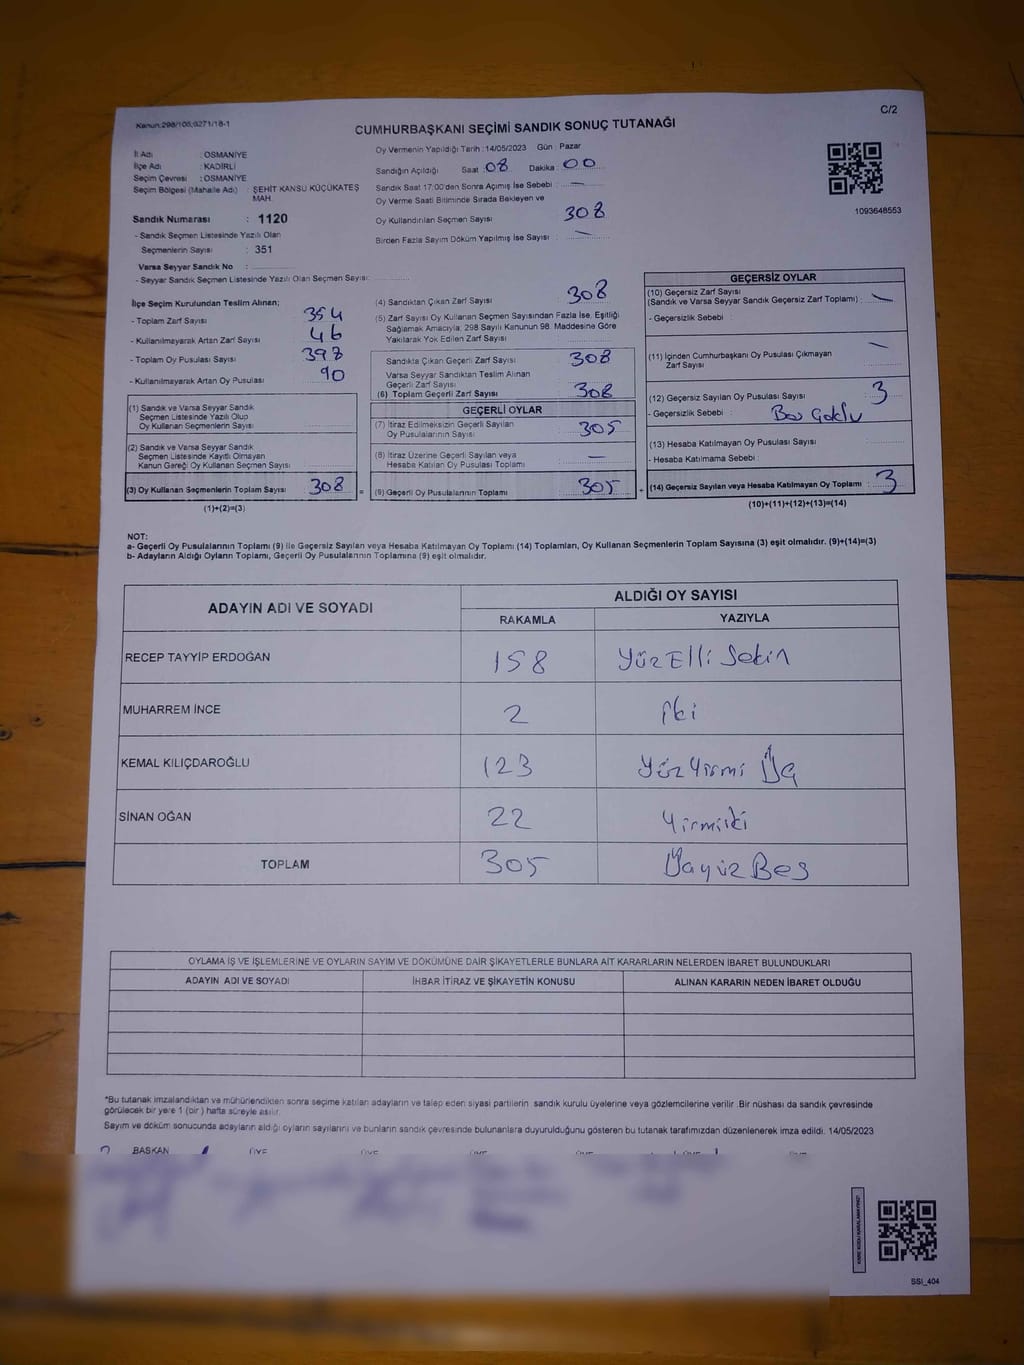 Kanun:298/105;6271/18-1
C/2
CUMHURBAŞKANI SEÇİMİ SANDIK SONUÇ TUTANAĞI
İl Adı : OSMANİYE
İlçe Adı : KADİRLİ
Seçim Çevresi : OSMANİYE
Seçim Bölgesi (Mahalle Adı) : ŞEHİT KANSU KÜÇÜKATEŞ
MAH.
Sandık Numarası : 1120
- Sandık Seçmen Listesinde Yazılı Olan
Seçmenlerin Sayısı : 351
Varsa Seyyar Sandık No :
- Seyyar Sandık Seçmen Listesinde Yazılı Olan Seçmen Sayısı:
Oy Vermenin Yapıldığı Tarih :14/05/2023 Gün : Pazar
Sandığın Açıldığı Saat : 08 Dakika : 00
Sandık Saat 17:00'dan Sonra Açımış İse Sebebi : —
Oy Verme Saati Bitiminde Sırada Bekleyen ve
Oy Kullandırılan Seçmen Sayısı : 308
Birden Fazla Sayım Döküm Yapılmış İse Sayısı : —
1093648553
İlçe Seçim Kurulundan Teslim Alınan;
- Toplam Zarf Sayısı : 354
- Kullanılmayarak Artan Zarf Sayısı : 46
- Toplam Oy Pusulası Sayısı : 398
- Kullanılmayarak Artan Oy Pusulası : 90
(1) Sandık ve Varsa Seyyar Sandık
Seçmen Listesinde Yazılı Olup
Oy Kullanan Seçmenlerin Sayısı :
(2) Sandık ve Varsa Seyyar Sandık
Seçmen Listesinde Kayıtlı Olmayan
Kanun Gereği Oy Kullanan Seçmen Sayısı:
(3) Oy Kullanan Seçmenlerin Toplam Sayısı : 308 =
(1)+(2)=(3)
(4) Sandıktan Çıkan Zarf Sayısı : 308
(5) Zarf Sayısı Oy Kullanan Seçmen Sayısından Fazla İse, Eşitliği
Sağlamak Amacıyla; 298 Sayılı Kanunun 98. Maddesine Göre
Yakılarak Yok Edilen Zarf Sayısı :
Sandıkta Çıkan Geçerli Zarf Sayısı : 308
Varsa Seyyar Sandıktan Teslim Alınan
Geçerli Zarf Sayısı :
(6) Toplam Geçerli Zarf Sayısı : 308
GEÇERLİ OYLAR
(7) İtiraz Edilmeksizin Geçerli Sayılan
Oy Pusulalarının Sayısı : 305
(8) İtiraz Üzerine Geçerli Sayılan veya
Hesaba Katılan Oy Pusulası Toplamı : —
(9) Geçerli Oy Pusulalarının Toplamı : 305 +
GEÇERSİZ OYLAR
(10) Geçersiz Zarf Sayısı
(Sandık ve Varsa Seyyar Sandık Geçersiz Zarf Toplamı) : —
- Geçersizlik Sebebi :
(11) İçinden Cumhurbaşkanı Oy Pusulası Çıkmayan
Zarf Sayısı : —
(12) Geçersiz Sayılan Oy Pusulası Sayısı : 3
- Geçersizlik Sebebi :
(13) Hesaba Katılmayan Oy Pusulası Sayısı :
- Hesaba Katılmama Sebebi :
(14) Geçersiz Sayılan veya Hesaba Katılmayan Oy Toplamı : 3
(10)+(11)+(12)+(13)=(14)
NOT:
a- Geçerli Oy Pusulalarının Toplamı (9) ile Geçersiz Sayılan veya Hesaba Katılmayan Oy Toplamı (14) Toplamları, Oy Kullanan Seçmenlerin Toplam Sayısına (3) eşit olmalıdır. (9)+(14)=(3)
b- Adayların Aldığı Oyların Toplamı, Geçerli Oy Pusulalarının Toplamına (9) eşit olmalıdır.
ADAYIN ADI VE SOYADI
ALDIĞI OY SAYISI
RAKAMLA YAZIYLA
RECEP TAYYİP ERDOĞAN 158 YüzElli Sekin
MUHARREM İNCE 2 iki
KEMAL KILIÇDAROĞLU 123 YüzYirmi Üç
SİNAN OĞAN 22 Yirmiiki
TOPLAM 305 Üçyüz Beş
OYLAMA İŞ VE İŞLEMLERİNE VE OYLARIN SAYIM VE DÖKÜMÜNE DAİR ŞİKAYETLERLE BUNLARA AİT KARARLARIN NELERDEN İBARET BULUNDUKLARI
ADAYIN ADI VE SOYADI İHBAR İTİRAZ VE ŞİKAYETİN KONUSU ALINAN KARARIN NEDEN İBARET OLDUĞU
*Bu tutanak imzalandıktan ve mühürlendikten sonra seçime katılan adayların ve talep eden siyasi partilerin sandık kurulu üyelerine veya gözlemcilerine verilir .Bir nüshası da sandık çevresinde
görülecek bir yere 1 (bir ) hafta süreyle asılır.
Sayım ve döküm sonucunda adayların aldığı oyların sayılarını ve bunların sandık çevresinde bulunanlara duyurulduğunu gösteren bu tutanak tarafımızdan düzenlenerek imza edildi. 14/05/2023
BAŞKAN ÜYE ÜYE ÜYE ÜYE ÜYE ÜYE
SSI_404